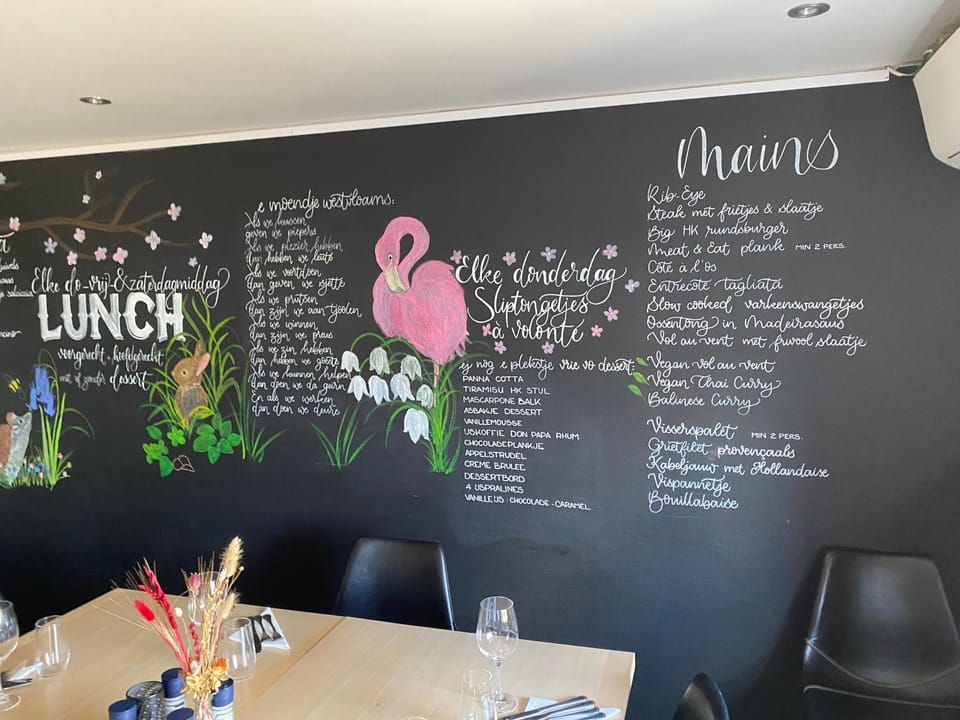 Elke do-vrij-&zaterdagmiddag
LUNCH
voorgerecht, hoofdgerecht
met of zonder dessert
e moendje westvloams:
Als we kussen
geven we piepers
Als we plezier hebben
dan hebben we leute
Als we
dan geven we
Als we
dan zijn we aan 't
Als we winnen
dan zijn we preus
Als we zin hebben
dan hebben we goeste
Als we kunnen helpen
dan doen we da geirn
En als we werken
dan doen we deure
Elke donderdag
Sliptongetjes
à volonté
ej nog e plekstje vrie vo dessert:
PANNA COTTA
TIRAMISU HK STIJL
MASCARPONE BALK
ASBAKJE DESSERT
VANILLEMOUSSE
IJSKOFFIE DON PAPA RHUM
CHOCOLADEPLANKJE
APPELSTRUDEL
CREME BRULEE
DESSERTBORD
4 IJSPRALINES
VANILLE IJS - CHOCOLADE - CARAMEL
Mains
Rib-Eye
Steak met frietjes & slaatje
Big HK rundsburger
Meat & Eat plank MIN 2 PERS.
Côte à l'os
Entrecote tagliata
Slow cooked varkenswangetjes
Ossentong in Madeirasaus
Vol au vent met fr slaatje
Vegan vol au vent
Vegan Thai Curry
Balinese Curry
Visserspalet MIN 2 PERS.
Grietfilet provençaals
Kabeljauw met Hollandaise
Vispannetje
Bouillabaise